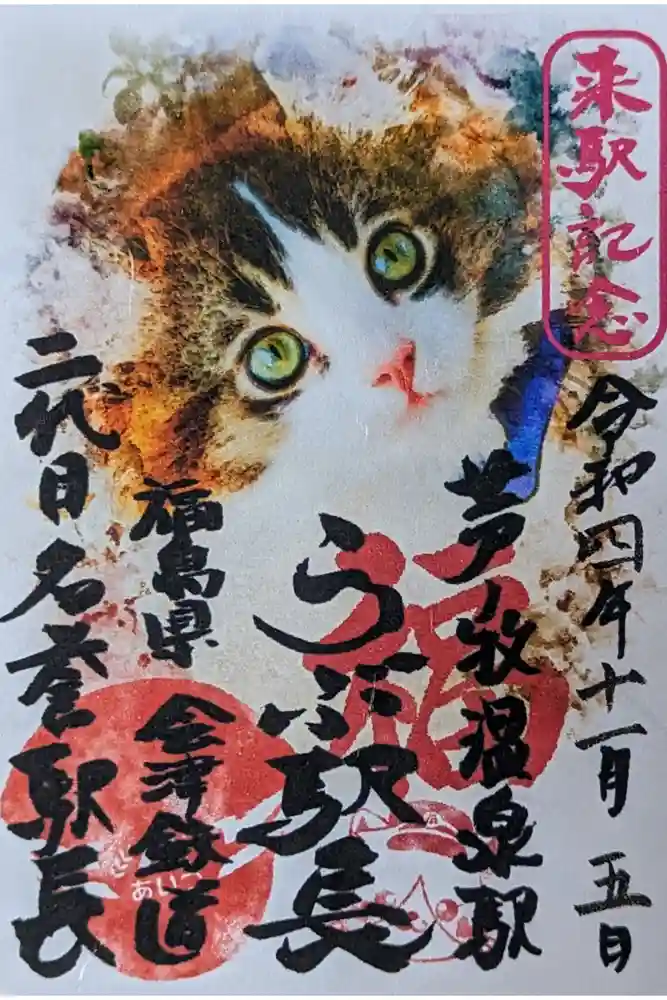 来駅記念
令和四年十一月 五日
芦ノ牧温泉駅
うぶ駅長
福島県
会津鉄道
二代目名誉駅長